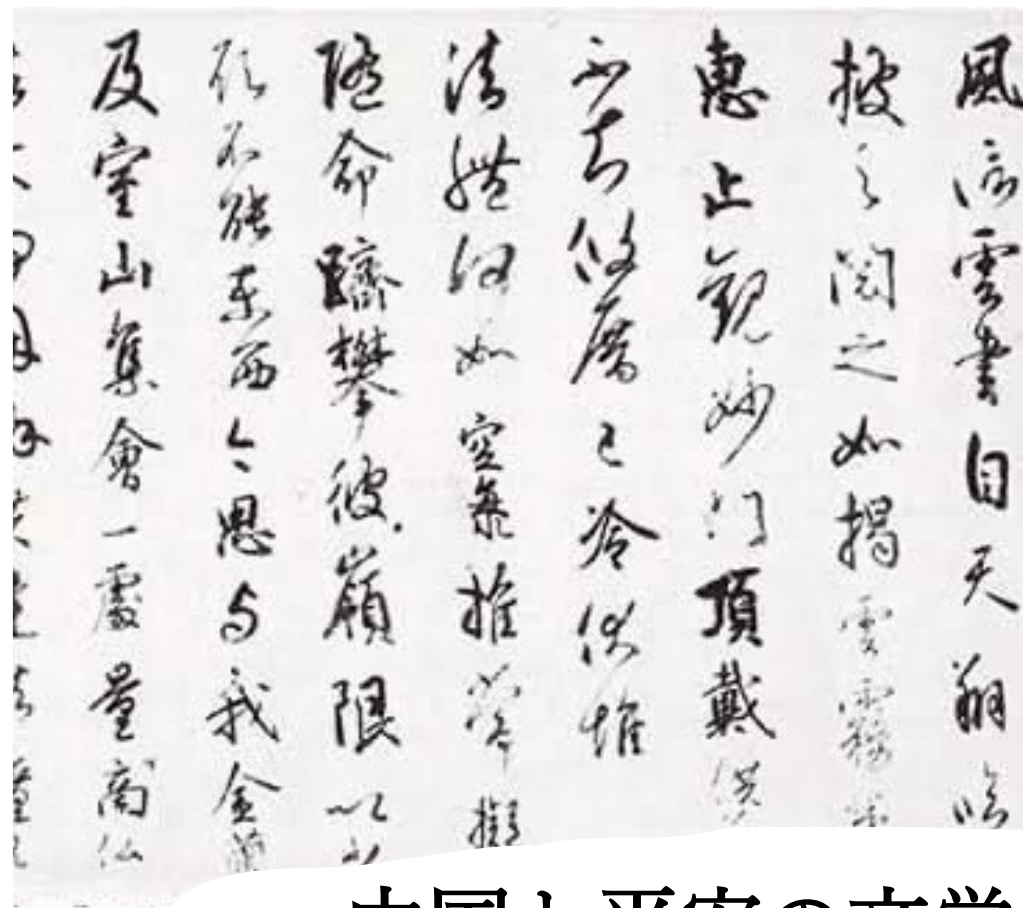 風信雲書自天翔臨
披之閲之如掲雲霧
惠止觀妙門頂戴供
不知攸厝已冷伏惟
法體何如空海推常擬
隨命躋攀彼嶺限以少
願不能東西今思与我金蘭
及室山集會一處量商仏
中国と平安の文学